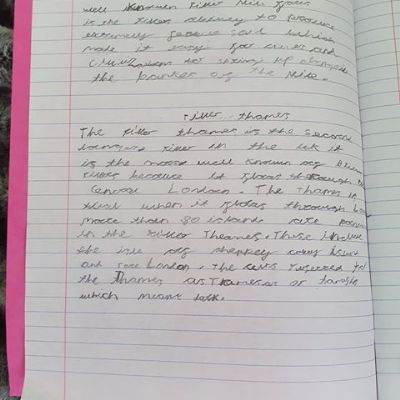 well known river Nile flows
is the rivers ability to produce
extremely fertile soil which
made it easy for cities and
civilizations to spring up alongside
the banks of the Nile.
river thames
The river thames is the second
longest river in the uk it
is the most well known of
rivers because it flows through
Central London. The Thames is
that when it flows through
more than 80 islands are
in the river Thames. These include
the isle of sheppey
and London. The celts referred to
the Thames as Tamesas or
which meant